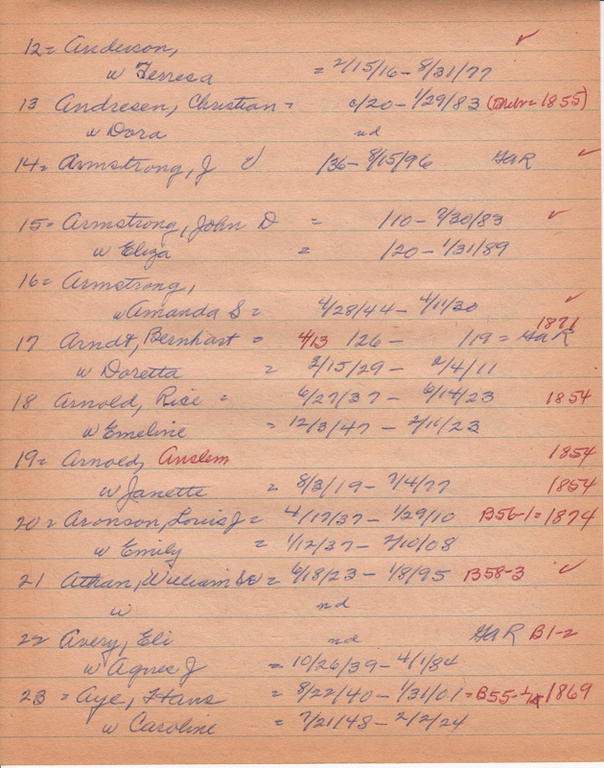 12 = Anderson, ✓
w Terresa = 2/15/16 - 8/31/77
13 Andresen, Christian = c/20 - 1/29/83 = 1855)
w Dora nd
14 = Armstrong, J /36 - 8/15/96 GaR ✓
15 = Armstrong, John D = /10 - 7/30/83 ✓
w Eliza = /20 - 1/31/89
16 = Armstrong, ✓
w Amanda S = 4/28/44 - 4/11/30
1871
17 Arndt, Bernhart = 4/13 /26 - /19 = GaR
w Doretta = 2/15/29 - 2/4/11
18 Arnold, Rice = 6/27/37 - 6/14/23 1854
w Emeline = 12/3/47 - 2/11/23
19 = Arnold, Anslem 1854
w Janette = 8/3/19 - 7/4/77 1854
20 = Aronson, Louis J = 4/17/37 - 1/29/10 B56-1 = 1874
w Emily = 1/12/37 - 2/10/08
21 Athan, William = 6/18/23 - 1/8/95 B58-3 ✓
w nd
22 Avery, Eli nd GaR B1-2
w Agnes J = 10/26/39 - 4/1/84
23 = Aye, Hans = 8/22/40 - 1/31/01 = B55- 1869
w Caroline = 7/21/48 - 2/2/24